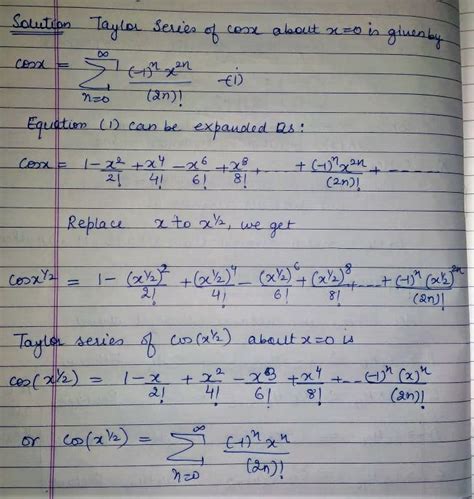 Solution Taylor Series of cosx about x=0 is given by
cosx = ∞∑n=0 (-1)^n x^2n / (2n)! -(i)
Equation (1) can be expanded as:
cosx = 1 - x^2/2! + x^4/4! - x^6/6! + x^8/8! ..... + (-1)^n x^2n/(2n)! + -----
Replace x to x^1/2, we get
cosx^1/2 = 1 - (x^1/2)^2/2! + (x^1/2)^4/4! - (x^1/2)^6/6! + (x^1/2)^8/8! + ...+ (-1)^n (x^1/2)^2n/(2n)!
Taylor series of cos(x^1/2) about x=0 is
cos(x^1/2) = 1 - x/2! + x^2/4! - x^3/6! + x^4/8! + ... (-1)^n (x)^n/(2n)!
or cos(x^1/2) = ∞∑n=0 (-1)^n x^n / (2n)!